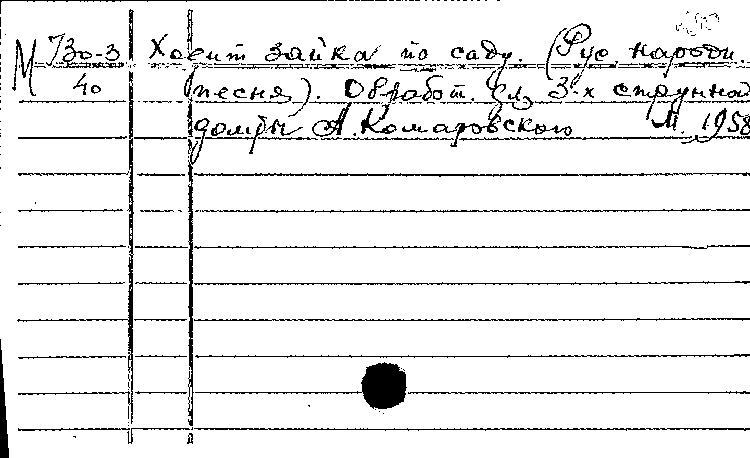 М 730-3 Ходит зайка по саду. (Рус. народн.
40 песня). Обработ. для 3-х струнной
домры А. Комаровского М. 1958